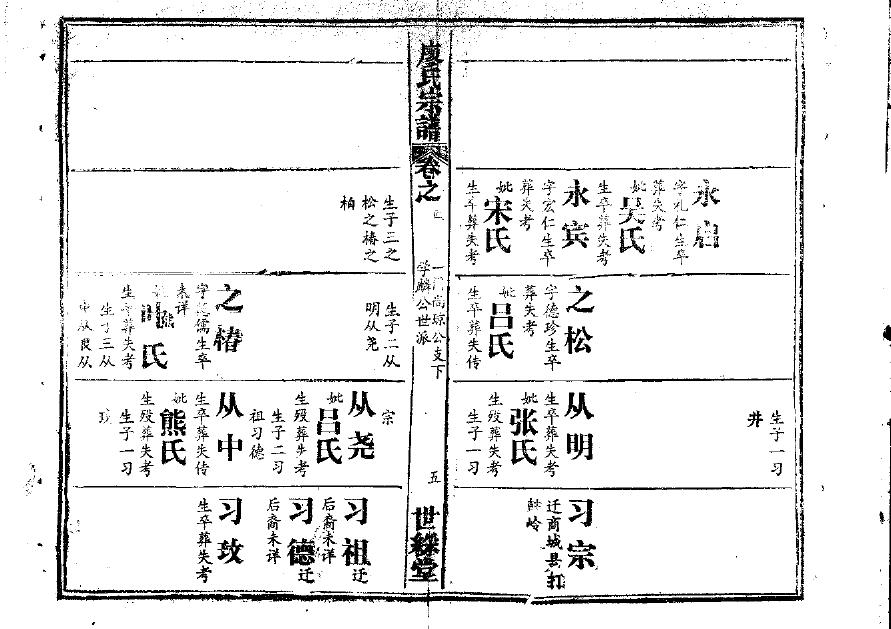 永启
字礼仁生卒
葬失考
妣
吴氏
生卒葬失考
永宾
字宏仁生卒
葬失考
妣
宋氏
生卒葬失考
之松
字德珍生卒
葬失考
妣
吕氏
生卒葬失传
生子一习
井
从明
生卒葬失考
妣
张氏
生殁葬失考
生子一习
习宗
迁商城县打
岭
廖氏宗谱
卷之
一门尚琼公支下
学麟公世派
五
世綵堂
生子三之
松之椿之
柏
生子二从
明从尧
之椿
字德儒生卒
未详
氏
生卒葬失考
生子三从
中从良从
宗
从尧
生殁葬失考
妣
吕氏
生子二习
祖习德
从中
生卒葬失传
妣
熊氏
生殁葬失考
生子一习
玟
习祖
迁
后裔未详
习德
迁
后裔未详
习玟
生卒葬失考